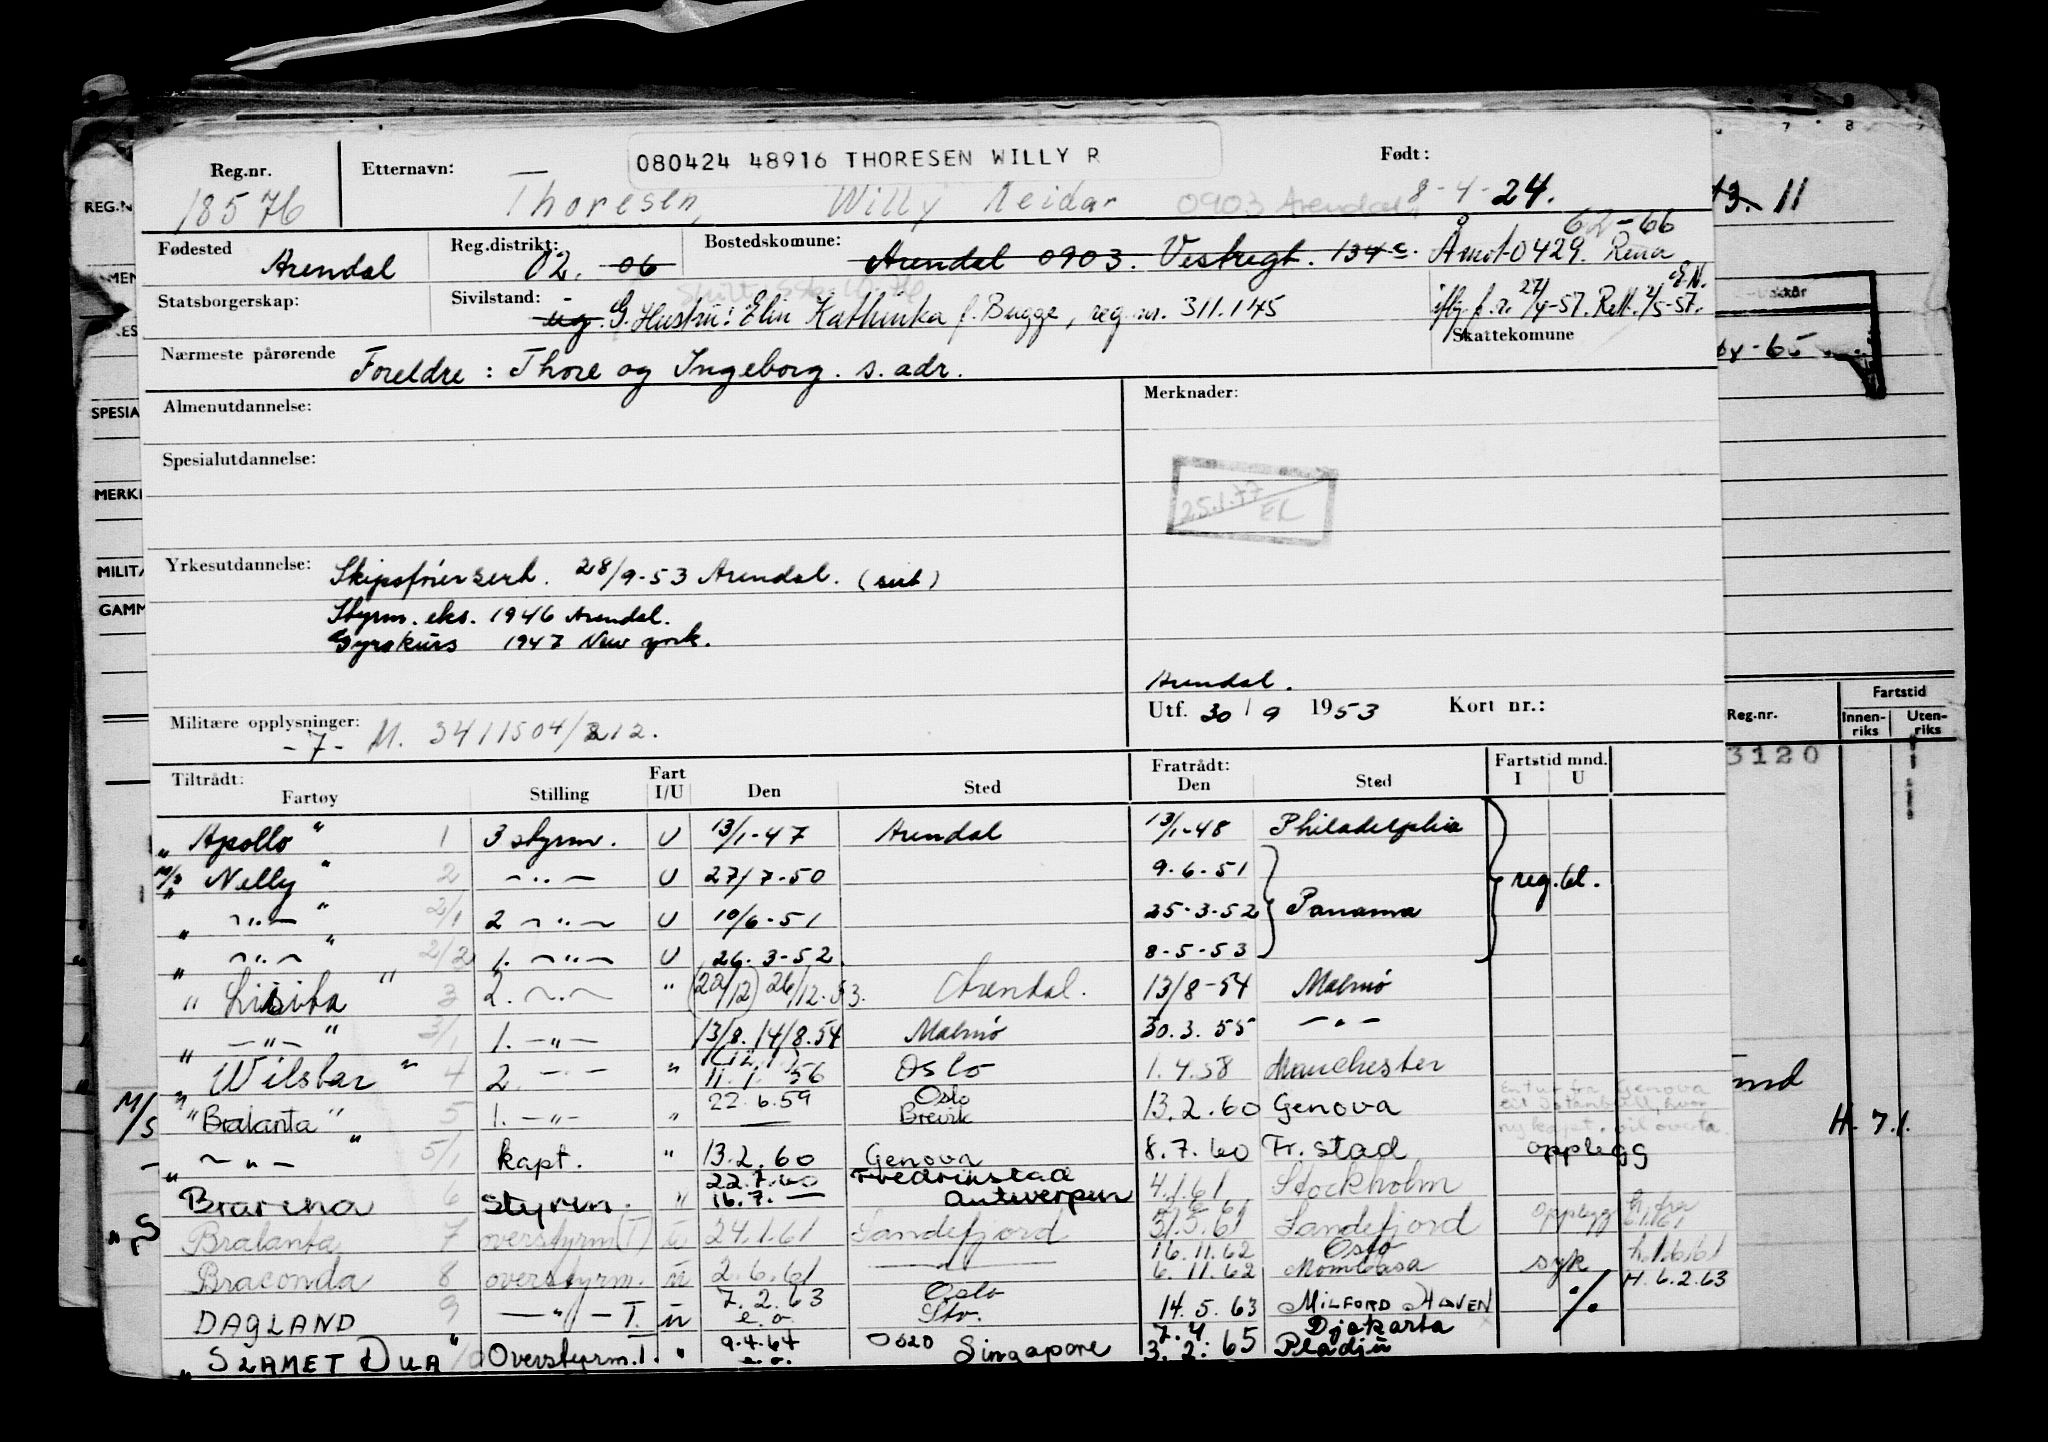 080424 48916 THORESEN WILLY R
Reg.nr. Etternavn: Født:
18576 Thoresen, Willy Reidar 0903 Arendal 8-4-24.
62-66
Fødested Arendal Reg.distrikt: 02. 06 Bostedskomune: Arendal 0903. Vestregt. 134 c. Åmot 0429. Rena
Statsborgerskap: Sivilstand: ug. G. Hustru: Elin Kathinka f. Bugge, reg. nr. 311.145 27/4-57. Rett. 2/5-57.
Skattekomune
Nærmeste pårørende Foreldre: Thore og Ingeborg. s. adr.
Almenutdannelse: Merknader:
Spesialutdannelse:
25.1.77 EL
Yrkesutdannelse: Skipsførersert. 28/9-53 Arendal. (sert)
Styrm. eks. 1946 Arendal.
Gyrokurs 1947 New York.
Arendal.
Utf. 30/9 1953 Kort nr.:
Militære opplysninger: -7- M. 3411504/212.
Tiltrådt: Fart Fratrådt: Fartstid mnd.
Fartøy Stilling I/U Den Sted Den Sted I U
"Apollo" 1 3 styrm. U 13/1-47 Arendal 13/1-48 Philadelphia
M/S "Nelly" 2 -"- U 27/7-50 9.6.51
"-"-" 2/1 2 -"- U 10/6-51 25-3-52 Panama reg. bl.
"-"-" 2/2 1. -"- U 26.3-52. 8-5-53
"Lisita" 3 2. -"- " (22/12) 26/12.53. Arendal. 13/8-54 Malmø
"-"-" 3/1 1. -"- 13/8. 14/8.54 Malmø 30.3.55 -"-
"Wilstar" 4 2. -"- " (12.1) 11.1.56 Oslo 1.4.58 Manchester
M/S "Bralanta" 5 1. -"- " 22.6.59 — Oslo Brevik 13.2.60 Genova
"-"-" 5/1 kapt. " 13.2.60 Genova 8.7.60 Fr.stad opplegg
Brarena 6 Styrm. " 22.7.60 16.7. — Fredrikstad Antwerpen 4.1.61 Stockholm
Bralanta 7 overstyrm (T) u 24.1.61 Sandefjord 31.5.61 Sandefjord opplegg
Braconda 8 overstyrm. u 2.6.61 -"- 16.11.62 6.11.62 Oslo Mombasa syk h.1.6.61
DAGLAND 9 -"- T. u 7.2.63 e.o. Oslo Sto. 14.5.63 MILFORD HAVEN ./. H. 6.2.63
"SLAMET DUA" 10 Overstyrm. T. " 9.4.64 e.o. Oslo Singapore 7.4. 3.2.65 Djakarta Pladju
REG.N
SPESIA
MERK
MILITÆ
GAMM
13. 11
64-65
Reg.nr. Fartstid
Innen-riks Uten-riks
3120
H. 7.1.